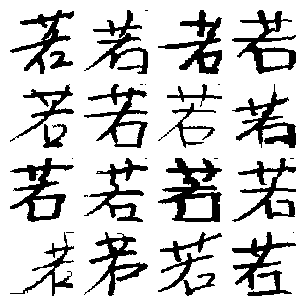 若若若若
若若若若
若若若若
若若若若